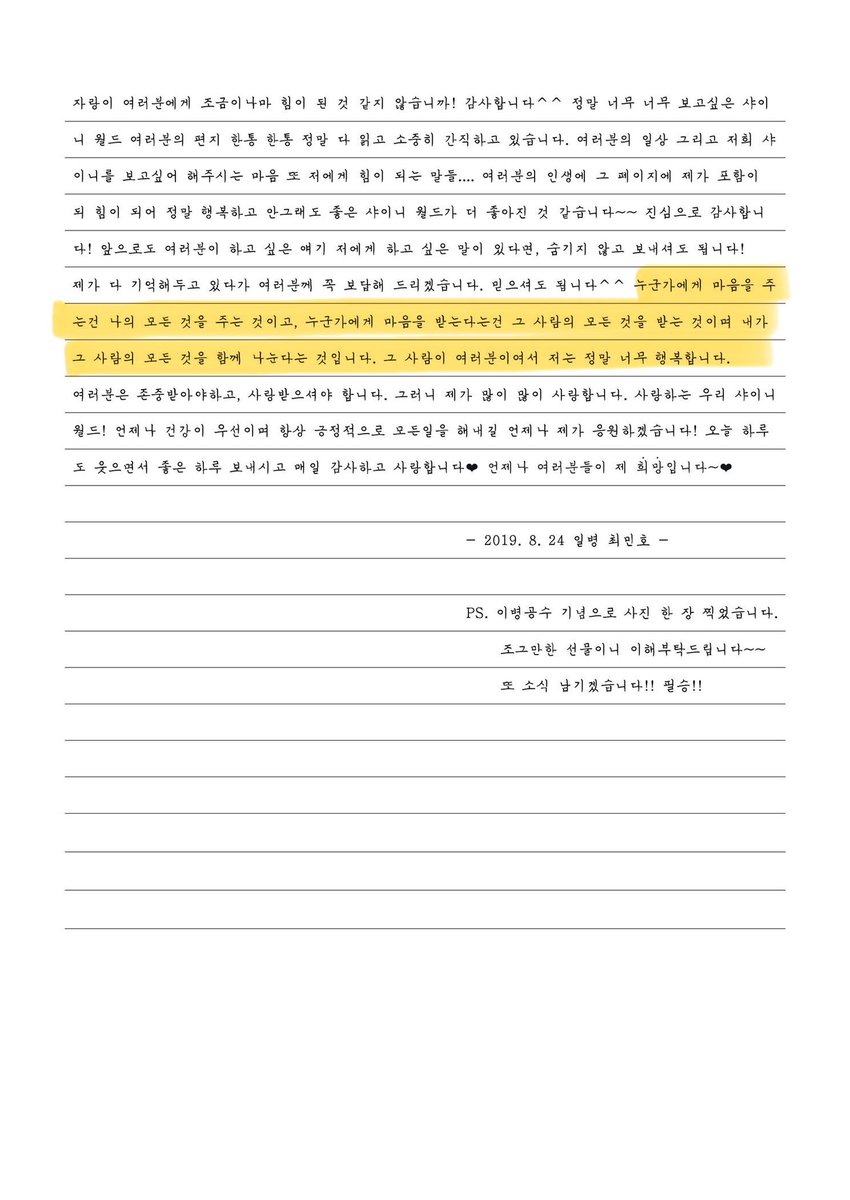 자랑이 여러분에게 조금이나마 힘이 된 것 같지 않습니까! 감사합니다^^ 정말 너무 너무 보고싶은 샤이
니 월드 여러분의 편지 한통 한통 정말 다 읽고 소중히 간직하고 있습니다. 여러분의 일상 그리고 저희 샤
이니를 보고싶어 해주시는 마음 또 저에게 힘이 되는 말들.... 여러분의 인생에 그 페이지에 제가 포함이
되 힘이 되어 정말 행복하고 안그래도 좋은 샤이니 월드가 더 좋아진 것 같습니다~~ 진심으로 감사합니
다! 앞으로도 여러분이 하고 싶은 얘기 저에게 하고 싶은 말이 있다면, 숨기지 않고 보내셔도 됩니다!
제가 다 기억해두고 있다가 여러분께 꼭 보답해 드리겠습니다. 믿으셔도 됩니다^^ 누군가에게 마음을 주
는건 나의 모든 것을 주는 것이고, 누군가에게 마음을 받는다는건 그 사람의 모든 것을 받는 것이며 내가
그 사람의 모든 것을 함께 나눈다는 것입니다. 그 사람이 여러분이여서 저는 정말 너무 행복합니다.
여러분은 존중받아야하고, 사랑받으셔야 합니다. 그러니 제가 많이 많이 사랑합니다. 사랑하는 우리 샤이니
월드! 언제나 건강이 우선이며 항상 긍정적으로 모든일을 해내길 언제나 제가 응원하겠습니다! 오늘 하루
도 웃으면서 좋은 하루 보내시고 매일 감사하고 사랑합니다❤ 언제나 여러분들이 제 희망입니다~❤
- 2019. 8. 24 일병 최민호 -
PS. 이병공수 기념으로 사진 한 장 찍었습니다.
조그만한 선물이니 이해부탁드립니다~~
또 소식 남기겠습니다!! 필승!!